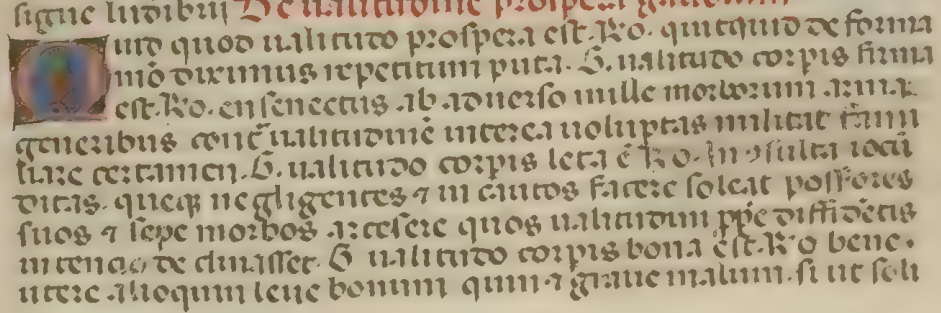 signe ludibrii De ualitudine prospera
Quid quod ualitudo prospera est. Ro. quicquid de forma
mõ diximus repetitum puta. G. ualitudo corpis firma
est. Ro. en senectus ab aduerso mille morborum arma
generibus cont̃ ualitudinẽ interea uoluptas militat fami
liare certamen. G. ualitudo corpis leta ẽ Ro. in
ditas. que negligentes ⁊ in cautos facere soleat possores
suos ⁊ sepe morbos arcesere quos ualitudini ppẽ diffidẽtis
intencio declinasset. G ualitudo corpis bona est. Ro bene
utere alioquin leue bonum quin ⁊ graue malum. si ut soli